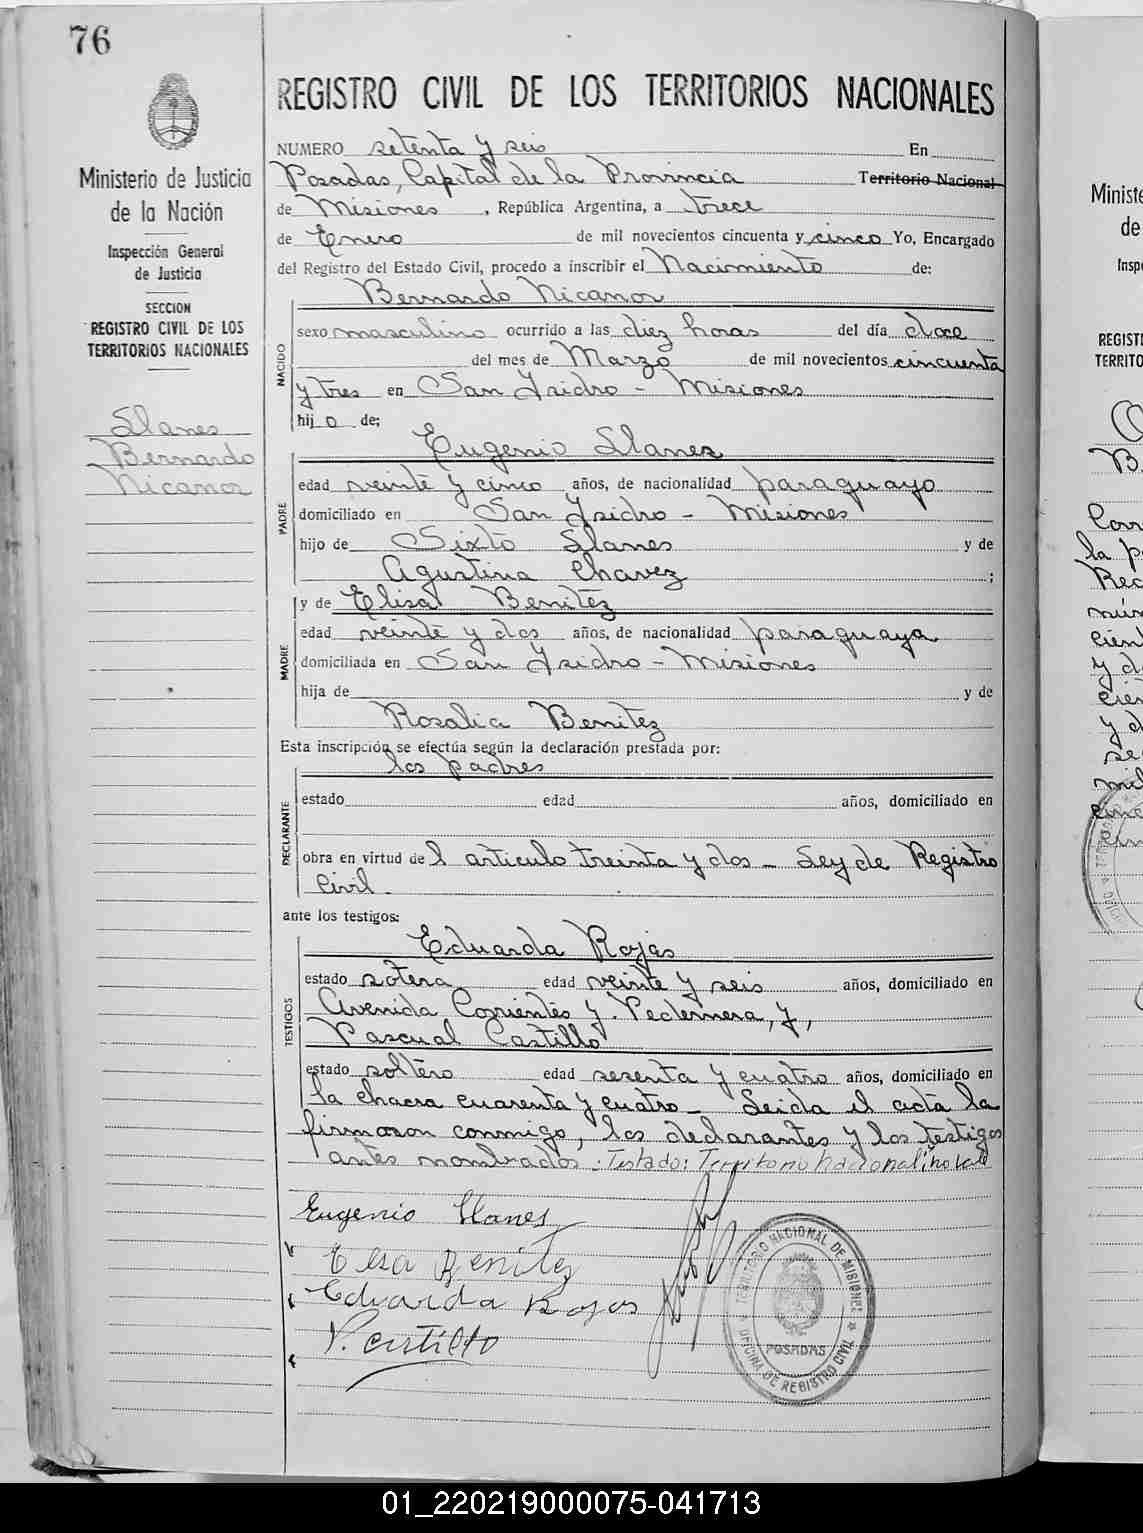 76
Ministerio de Justicia
de la Nación
Inspección General
de Justicia
SECCION
REGISTRO CIVIL DE LOS
TERRITORIOS NACIONALES
Llanes
Bernardo
Nicanor
REGISTRO CIVIL DE LOS TERRITORIOS NACIONALES
NUMERO setenta y seis En
Posadas, Capital de la Provincia Territorio Nacional
de Misiones, República Argentina, a trece
de Enero de mil novecientos cincuenta y cinco Yo, Encargado
del Registro del Estado Civil, procedo a inscribir el Nacimiento de:
Bernardo Nicanor
NACIDO
sexo masculino ocurrido a las diez horas del día doce
del mes de Marzo de mil novecientos cincuenta
y tres en San Isidro - Misiones
hijo de;
Eugenio Llanes
PADRE
edad veinte y cinco años, de nacionalidad paraguayo
domiciliado en San Isidro - Misiones
hijo de Sixto Llanes y de
Agustina Chavez ;
y de Elisa Benitez
MADRE
edad veinte y dos años, de nacionalidad paraguaya
domiciliada en San Isidro - Misiones
hija de y de
Rosalia Benitez
Esta inscripción se efectúa según la declaración prestada por:
los padres
DECLARANTE
estado edad años, domiciliado en
obra en virtud del articulo treinta y dos - Ley de Registro
Civil.
ante los testigos:
Eduarda Rojas
TESTIGOS
estado sotera edad veinte y seis años, domiciliado en
Avenida Corrientes y Pedernera, y,
Pascual Castillo
estado soltero edad sesenta y cuatro años, domiciliado en
la chacra cuarenta y cuatro - Leida el acta la
firmaron conmigo, los declarantes y los testigos
antes nombrados. Testado: Territorio Nacional: no vale
Eugenio Llanes
Elisa Benitez
Eduarda Rojas
P. Castillo
TERRITORIO NACIONAL DE MISIONES
POSADAS
OFICINA DE REGISTRO CIVIL
01_220219000075-041713